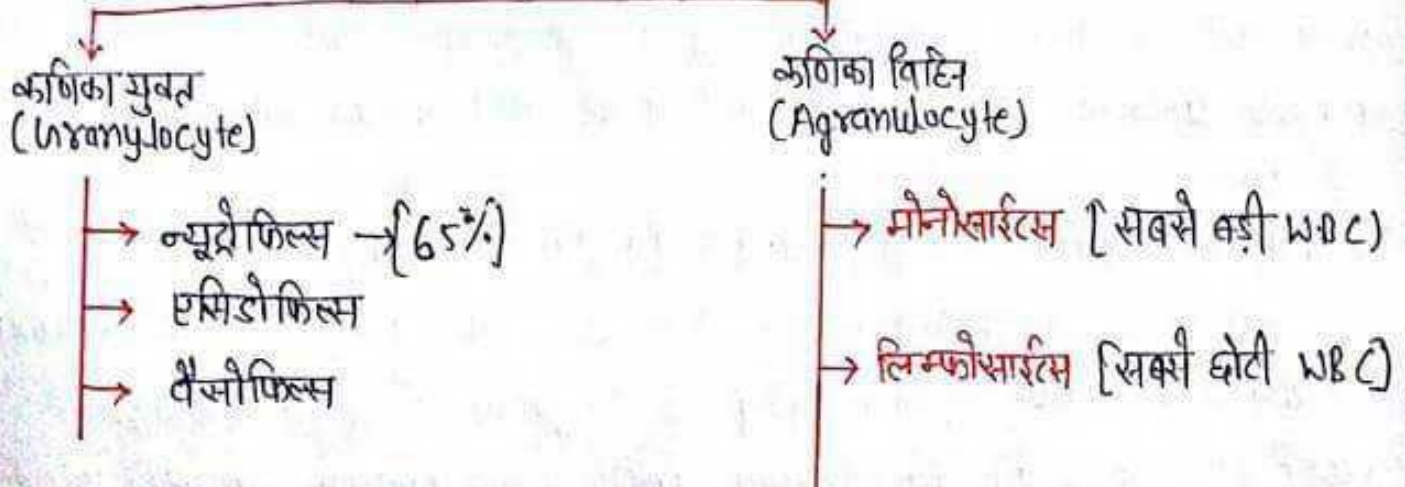 कणिका युक्त
(Granylocyte)
न्यूट्रोफिल्स → [65%]
एसिडोफिल्स
वैसोफिल्स
कणिका विहिन
(Agranulocyte)
मोनोसाईटस [सबसे बड़ी WBC)
लिम्फोसाईटस [सबसे छोटी WBC]